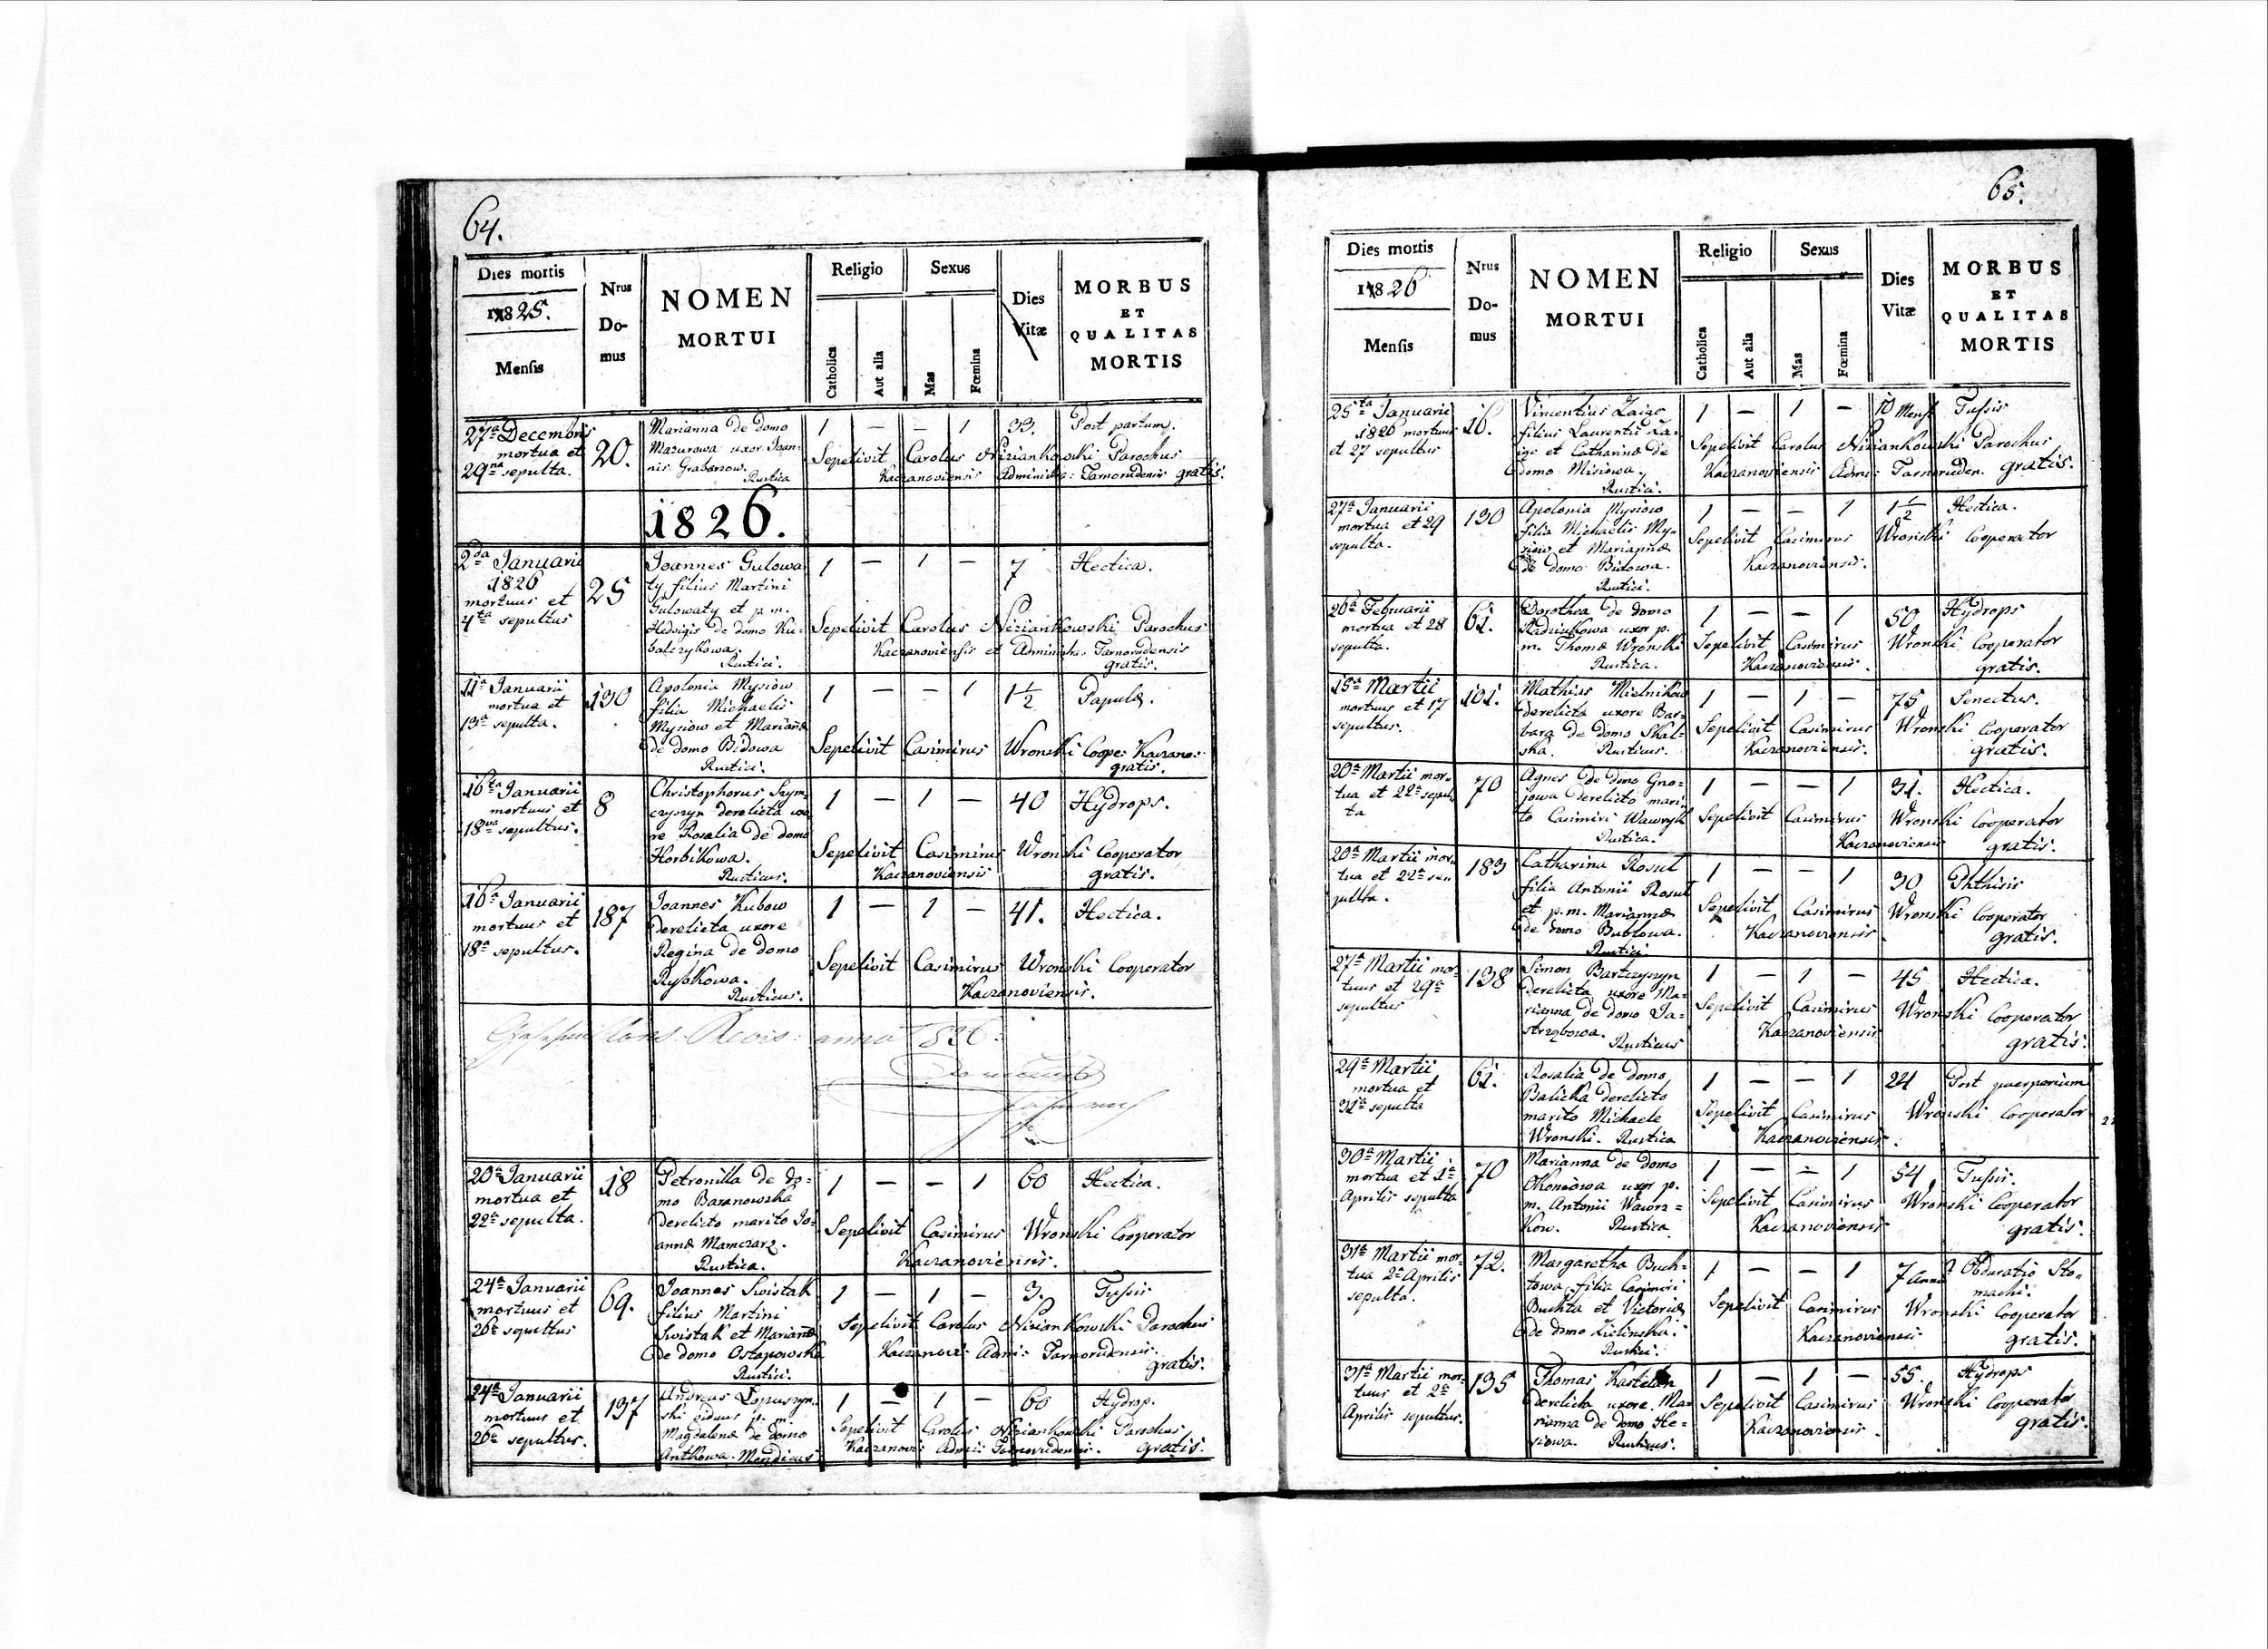 64.
Dies mortis
1825.
Mensis
Nrus Do-
mus
NOMEN
MORTUI
Religio
Catholica
Aut alia
Sexus
Mas
Fœmina
Dies
Vitæ
MORBUS
ET
QUALITAS
MORTIS
27a Decembris
mortua et
29na sepulta.
20.
Marianna de domo
Mazurowa uxor Joan-
nis Grabarzow.
Rustica
1 — — 1 33. Post partum.
Sepelivit Carolus Niziankowski Parochus
Kaczanoviensis Administra: Tarnorudensis gratis.
1826.
2da Januarii
1826
mortuus et
4ta sepultus
25
Joannes Gulowa
ty filius Martini
Gulowaty et p. m.
Hedvigis de domo Ku-
balczykowa.
Rustici.
1 — 1 — 7 Hectica.
Sepelivit Carolus Niziankowski Parochus
Kaczanoviensis et Administra: Tarnorudensis
gratis.
11a Januarii
mortua et
13a sepulta.
190
Apolonia Mysiow
filia Michaelis
Mysiow et Mariannæ
de domo Bidowa
Rustici.
1 — — 1 1½ Papulæ.
Sepelivit Casimirus Wronski Coope: Kaczano:
gratis.
16ta Januarii
mortuus et
18va sepultus.
8
Christophorus Szym-
czyszyn derelicta uxo
re Rosalia de domo
Horbikowa.
Rusticus.
1 — 1 — 40 Hydrops.
Sepelivit Casimirus Wronski Cooperator
Kaczanoviensis gratis.
16a Januarii
mortuus et
18a sepultus.
187
Joannes Kubow
derelicta uxore
Regina de domo
Rybkowa.
Rusticus.
1 — 1 — 41. Hectica.
Sepelivit Casimirus Wronski Cooperator
Kaczanoviensis.
anno 1826:
20a Januarii
mortua et
22a sepulta.
18
Petronilla de do-
mo Baranowska
derelicto marito Jo-
anne Mamczarz.
Rustica.
1 — — 1 60 Hectica.
Sepelivit Casimirus Wronski Cooperator
Kaczanoviensis.
24a Januarii
mortuus et
26a sepultus
69.
Joannes Swistak
filius Martini
Swistak et Mariannæ
de domo Ostapowska
Rustici.
1 — 1 — 3. Tussis
Sepelivit Carolus Niziankowski Parochus
Kaczanovi: Admi: Tarnorudensis.
gratis.
24a Januarii
mortuus et
26a sepultus.
197
Andreas Lopuszyn-
ski viduus p. m.
Magdalenæ de domo
Antkowa. Mendicus
1 — 1 — 60 Hydrop.
Sepelivit Carolus Niziankowski Parochus
Kaczanovi: Admi: Tarnorudensis. gratis.
65.
Dies mortis
1826
Mensis
Nrus
Do-
mus
NOMEN
MORTUI
Religio
Catholica
Aut alia
Sexus
Mas
Fœmina
Dies
Vitæ
MORBUS
ET
QUALITAS
MORTIS
25ta Januarii
1826 mortuus
et 27 sepultus
16.
Vincentius Zaigo
filius Laurentii Za-
igo et Catharinæ de
domo Misiowa.
Rustici.
1 — 1 — 10 Mens. Tussis
Sepelivit Carolus Niziankowski Parochus
Kaczanoviensis Admi: Tarnoruden. gratis.
27a Januarii
mortua et 29
sepulta.
190
Apolonia Mysiow
filia Michaelis My-
siow et Mariannæ
de domo Bidowa.
Rustici.
1 — — 1 1½ Hectica.
Sepelivit Casimirus Wronski Cooperator
Kaczanoviensis.
26a Februarii
mortua et 28
sepulta.
61.
Dorothea de domo
Radziukowa uxor p.
m. Thomæ Wronski
Rustica.
1 — — 1 50 Hydrops
Sepelivit Casimirus Wronski Cooperator
Kaczanoviensis. gratis.
15a Martii
mortuus et 17
sepultus.
101.
Mathias Mielnikow
derelicta uxore Bar-
bara de domo Skal-
ska. Rusticus.
1 — 1 — 75 Senectus.
Sepelivit Casimirus Wronski Cooperator
Kaczanoviensis. gratis.
20a Martii mor-
tua et 22a sepul-
ta
70
Agnes de domo Gno-
jowa derelicto mari-
to Casimiri Wawryk
Rustica.
1 — — 1 31. Hectica.
Sepelivit Casimirus Wronski Cooperator
Kaczanoviensis gratis.
20a Martii mor-
tua et 22a se-
pulta.
183
Catharina Rosul
filia Antonii Rosul
et p. m. Mariannæ
de domo Bublowa.
Rustici
1 — — 1 30 Phthisis
Sepelivit Casimirus Wronski Cooperator
Kaczanoviensis gratis.
27a Martii mor-
tuus et 29a
sepultus
138
Simon Bartczyszyn
derelicta uxore Ma-
rianna de domo Ja-
strzębowa. Rusticus
1 — 1 — 45 Hectica.
Sepelivit Casimirus Wronski Cooperator
Kaczanoviensis gratis.
29a Martii
mortua et
31a sepulta
61.
Rosalia de domo
Balicka derelicto
marito Michaele
Wronski. Rustica
1 — — 1 24 Post puerperium
Sepelivit Casimirus Wronski Cooperator
Kaczanoviensis.
30a Martii
mortua et 1a
Aprilis sepulta
70
Marianna de domo
Okoniowa uxor p.
m. Antonii Wawrz-
kow. Rustica
1 — — 1 54 Tussis.
Sepelivit Casimirus Wronski Cooperator
Kaczanoviensis gratis.
31a Martii mor-
tua 2a Aprilis
sepulta.
72.
Margaretha Buch-
towa filia Casimiri
Buchta et Victoriæ
de domo Zielinska.
Rustici.
1 — — 1 7 anno Obduratio Sto-
machi.
Sepelivit Casimirus Wronski Cooperator
Kaczanoviensis gratis.
31a Martii mor-
tuus et 2a
Aprilis sepultus.
135
Thomas Kastelan
derelicta uxore Ma-
rianna de domo He-
siowa. Rusticus.
1 — 1 — 55. Hydrops
Sepelivit Casimirus Wronski Cooperator
Kaczanoviensis. gratis.